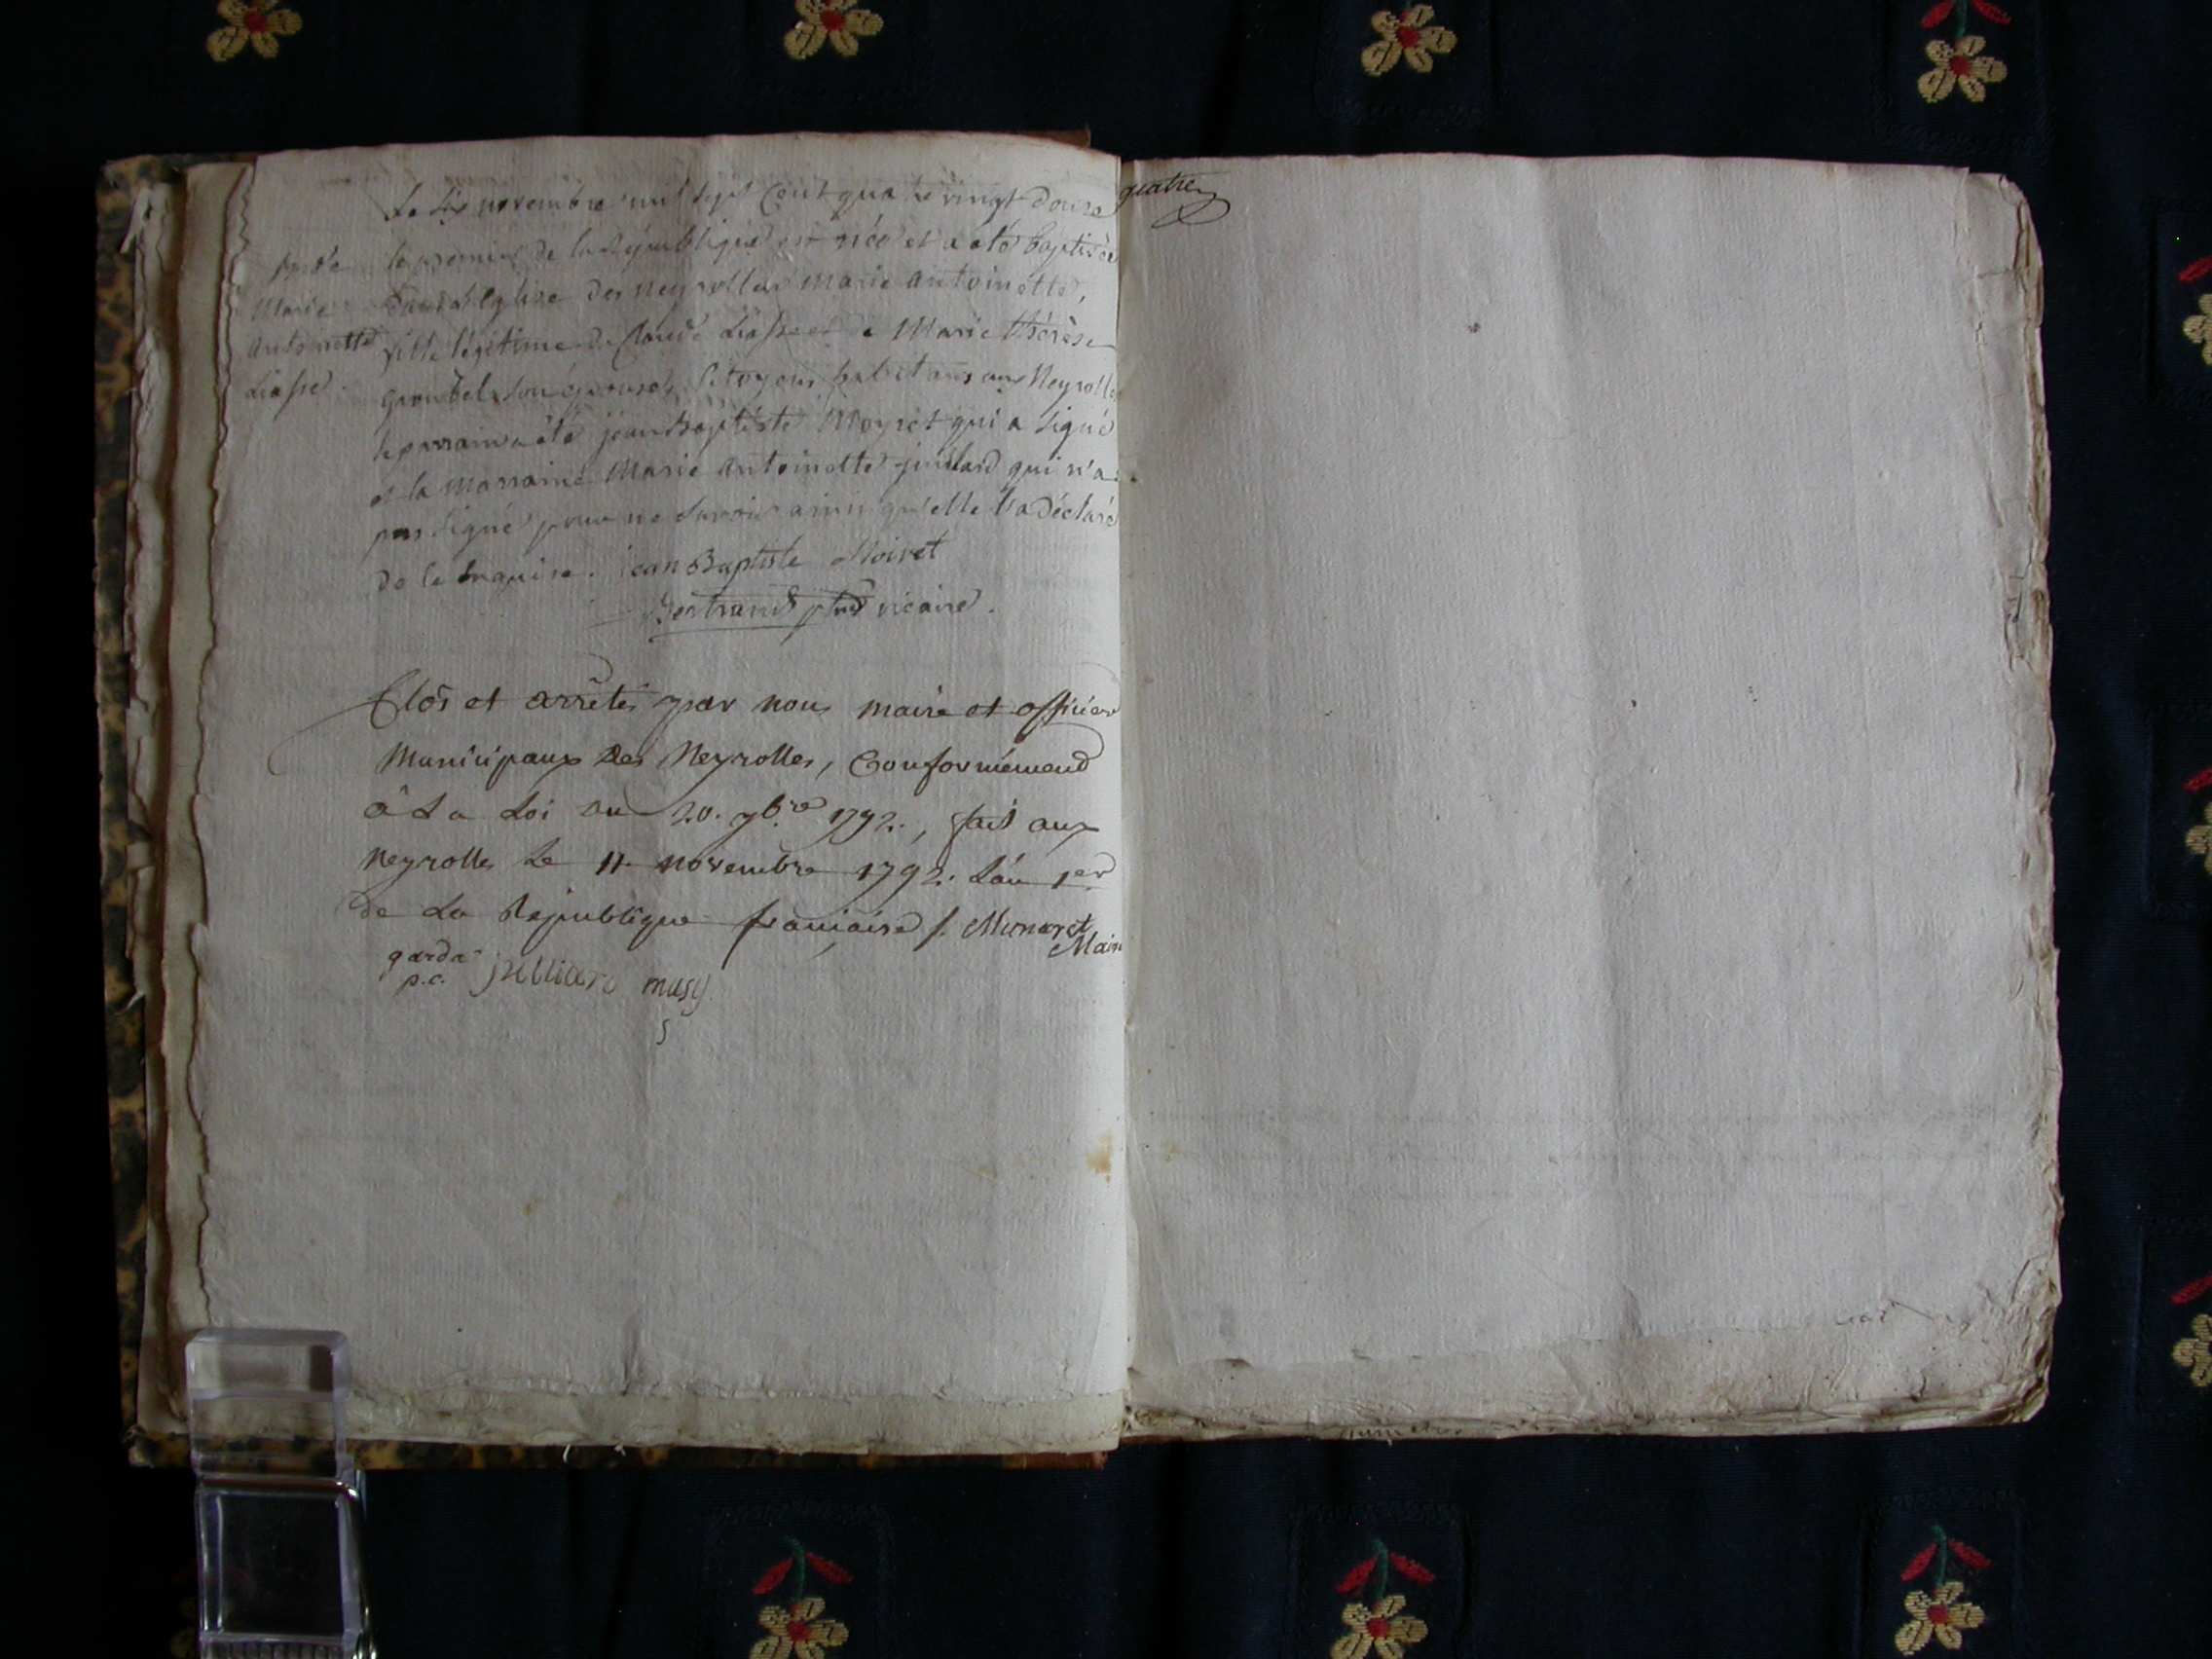 Le dix novembre mil sept cent quatre vingt douze
le premier de la République est née et a été baptisée
dans l'Eglise des neyrolles marie antoinette,
fille légitime de Claude Liasse et de Marie thérèse
son épouse, Citoyens habitans aux Neyrolles
le parrain a été jean Baptiste Moyret qui a signé
et la marraine Marie antoinette juillard qui n'a
pas signé pour ne savoir ainsi qu'elle l'a déclaré
de ce enquise. jean Baptiste Moiret
Bertrand vicaire.
Marie
antoinette
Liasse.
Clos et arrêtés par nous maire et officiers
Municipaux des Neyrolles, Conformémend
à La Loi du 20. 7b.re 1792., fait aux
neyrolles Le 11. novembre 1792. L'án 1er
de La République francaise /. Munaret
Maire
garda
p.c. juilliard musy
quatre